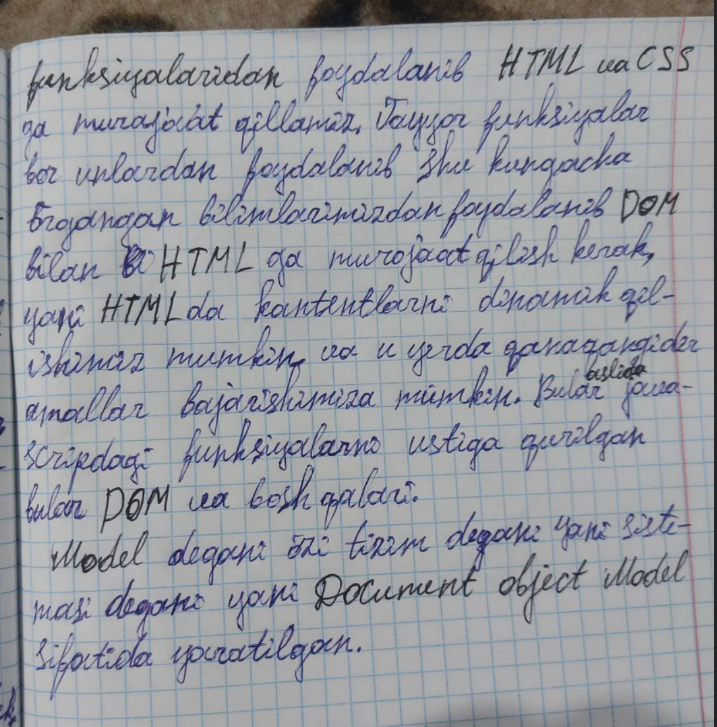 funksiyalaridan foydalanib HTML va CSS
ga murajaat qillamiz. Tayyor funksiyalar
bor unlardan foydalanib shu kungacha
õrgangan bilimlarimizdan foydalanib DOM
bilan HTML ga murojaat qilish kerak,
yani HTML da kantentlarni dinamik qil-
ishimiz mumkin va u yerda qanaqangider
amallar bajarishimiza mumkin. Bular aslida java-
scripdagi funksiyalarno ustiga qurilgan
bular DOM va bosh qalari.
Model degani õzi tizim degani yani siste-
masi degani yani Document object Model
sifatida yaratilgan.